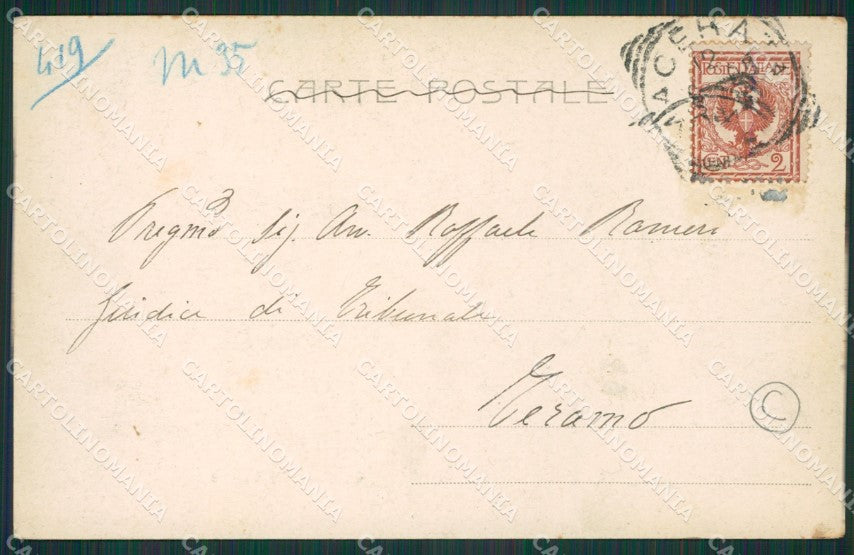 419
M 35
CARTE POSTALE
MACERATA
POSTE ITALIANE
CENT. 2
Pregmo Sig. Avv. Raffaele Ranieri
Giudice di Tribunale
Teramo
C
CARTOLINOMANIA